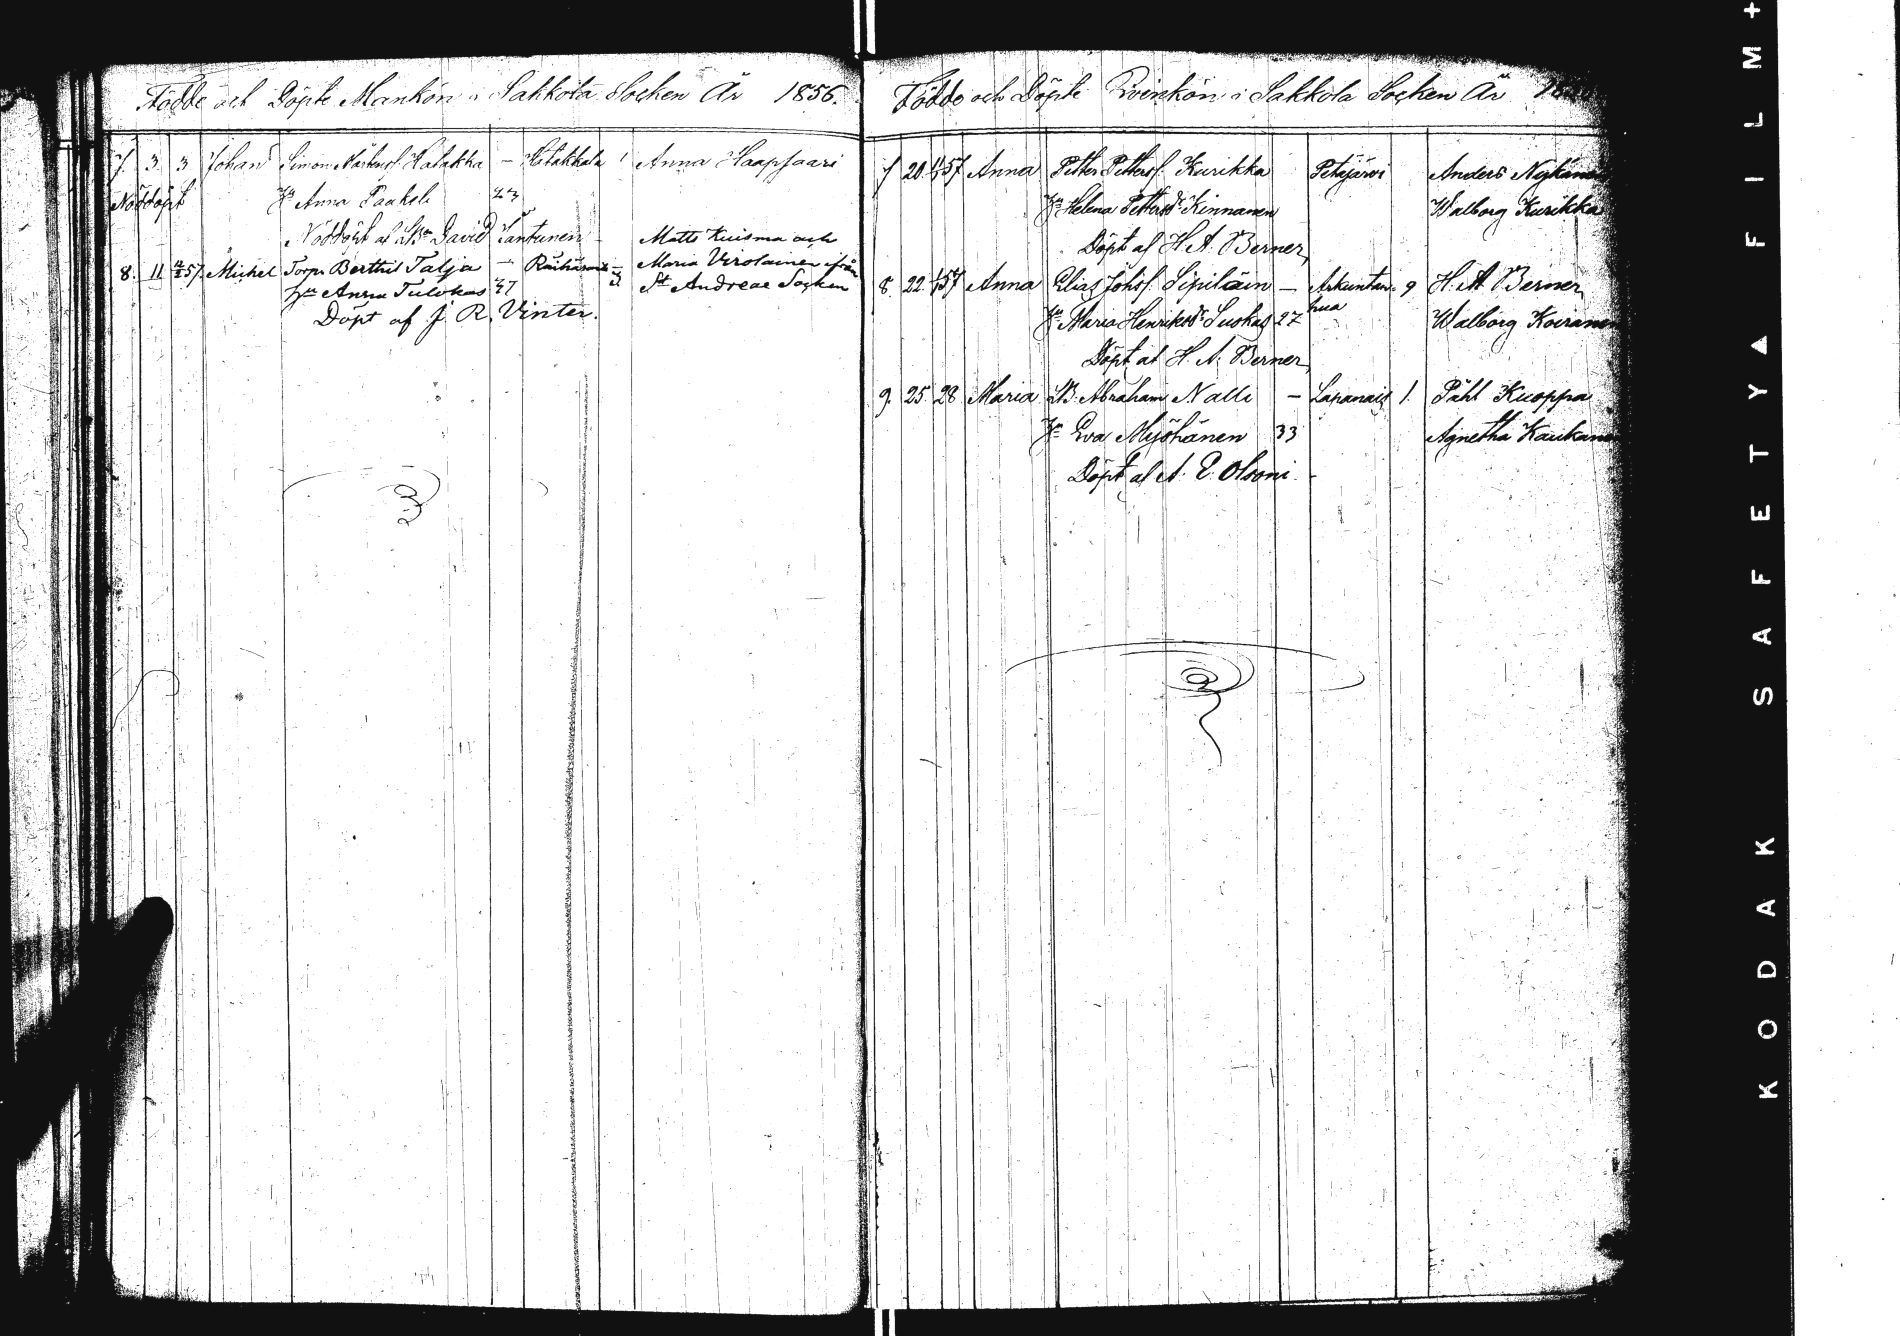 Födde och Döpte Mankön i Sakkola Socken År 1856.
7. 3 3 Johan Simon Mårtenss. Halakka - Kitakkala 1 Anna Haapsaari
Nöddöpt Hu Anna Paakeli 23
Nöddöpt af David Santunen
Matts Kuisma och
8. 11 57. Michel Torp. Berthil Talja - 3 Maria Virolainen ifrån
Hu Anna Tulokas 37 St Andreae Socken
Döpt af J. R. Vinter.
Födde och Döpte Qvinkön i Sakkola Socken År
7 20 57 Anna Petter Petterss. Kurikka Petäjärvi Anders Nykänen
Hu Helena Pettersdr Kinnanen Walborg Kurikka
Döpt af H. A. Berner
8. 22. 57 Anna Elias Johss. Sipiläin - Arkuntan- 9 H. A. Berner
hua
Hu Maria Henriksdr Suokas 27 Walborg Koiranen
Döpt af H. A. Berner
9. 25. 28 Maria Abraham Nalli - Lapanais 1. Påhl Kuoppa
Hu Eva Myöhänen 33 Agnetha Kaukanen
Döpt af A. E. Olsoni.
KODAK SAFETY ▲ FILM +